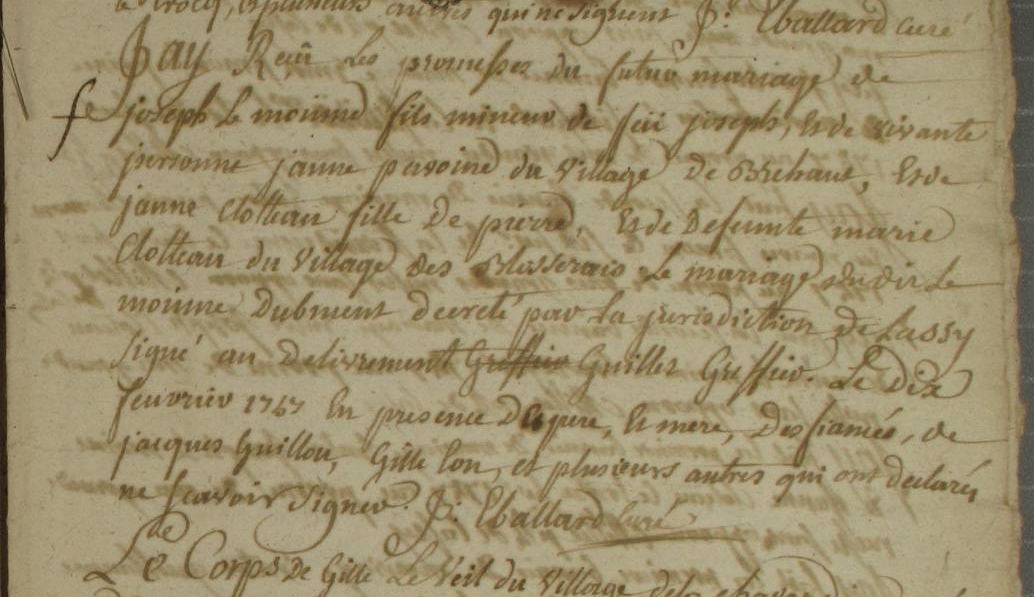 le Crocq, et plusieurs autres qui ne signent P: Eballard curé
Jay Reçû Les promesses du futur mariage de
fe joseph Le moinne fils mineur de feü joseph, et de vivante
personne janne pavoine du village de Brehaut, et de
janne Clotteau fille de pierre, et de Defeunte marie
Clotteau du village des Blisserais Le mariage dudit Le
moinne Dubment decreté par La jurisdiction de Lassy
signé au delivrement Greffier Guillet Greffier. Le Dix
feuvrier 1757 En presence Des pere, et mere, Des fiancés, de
jacques Guillou, Gille Lon, et plusieurs autres qui ont declarés
ne scavoir signer. P: Eballard curé
Le Corps de Gille Le Veil du village de la